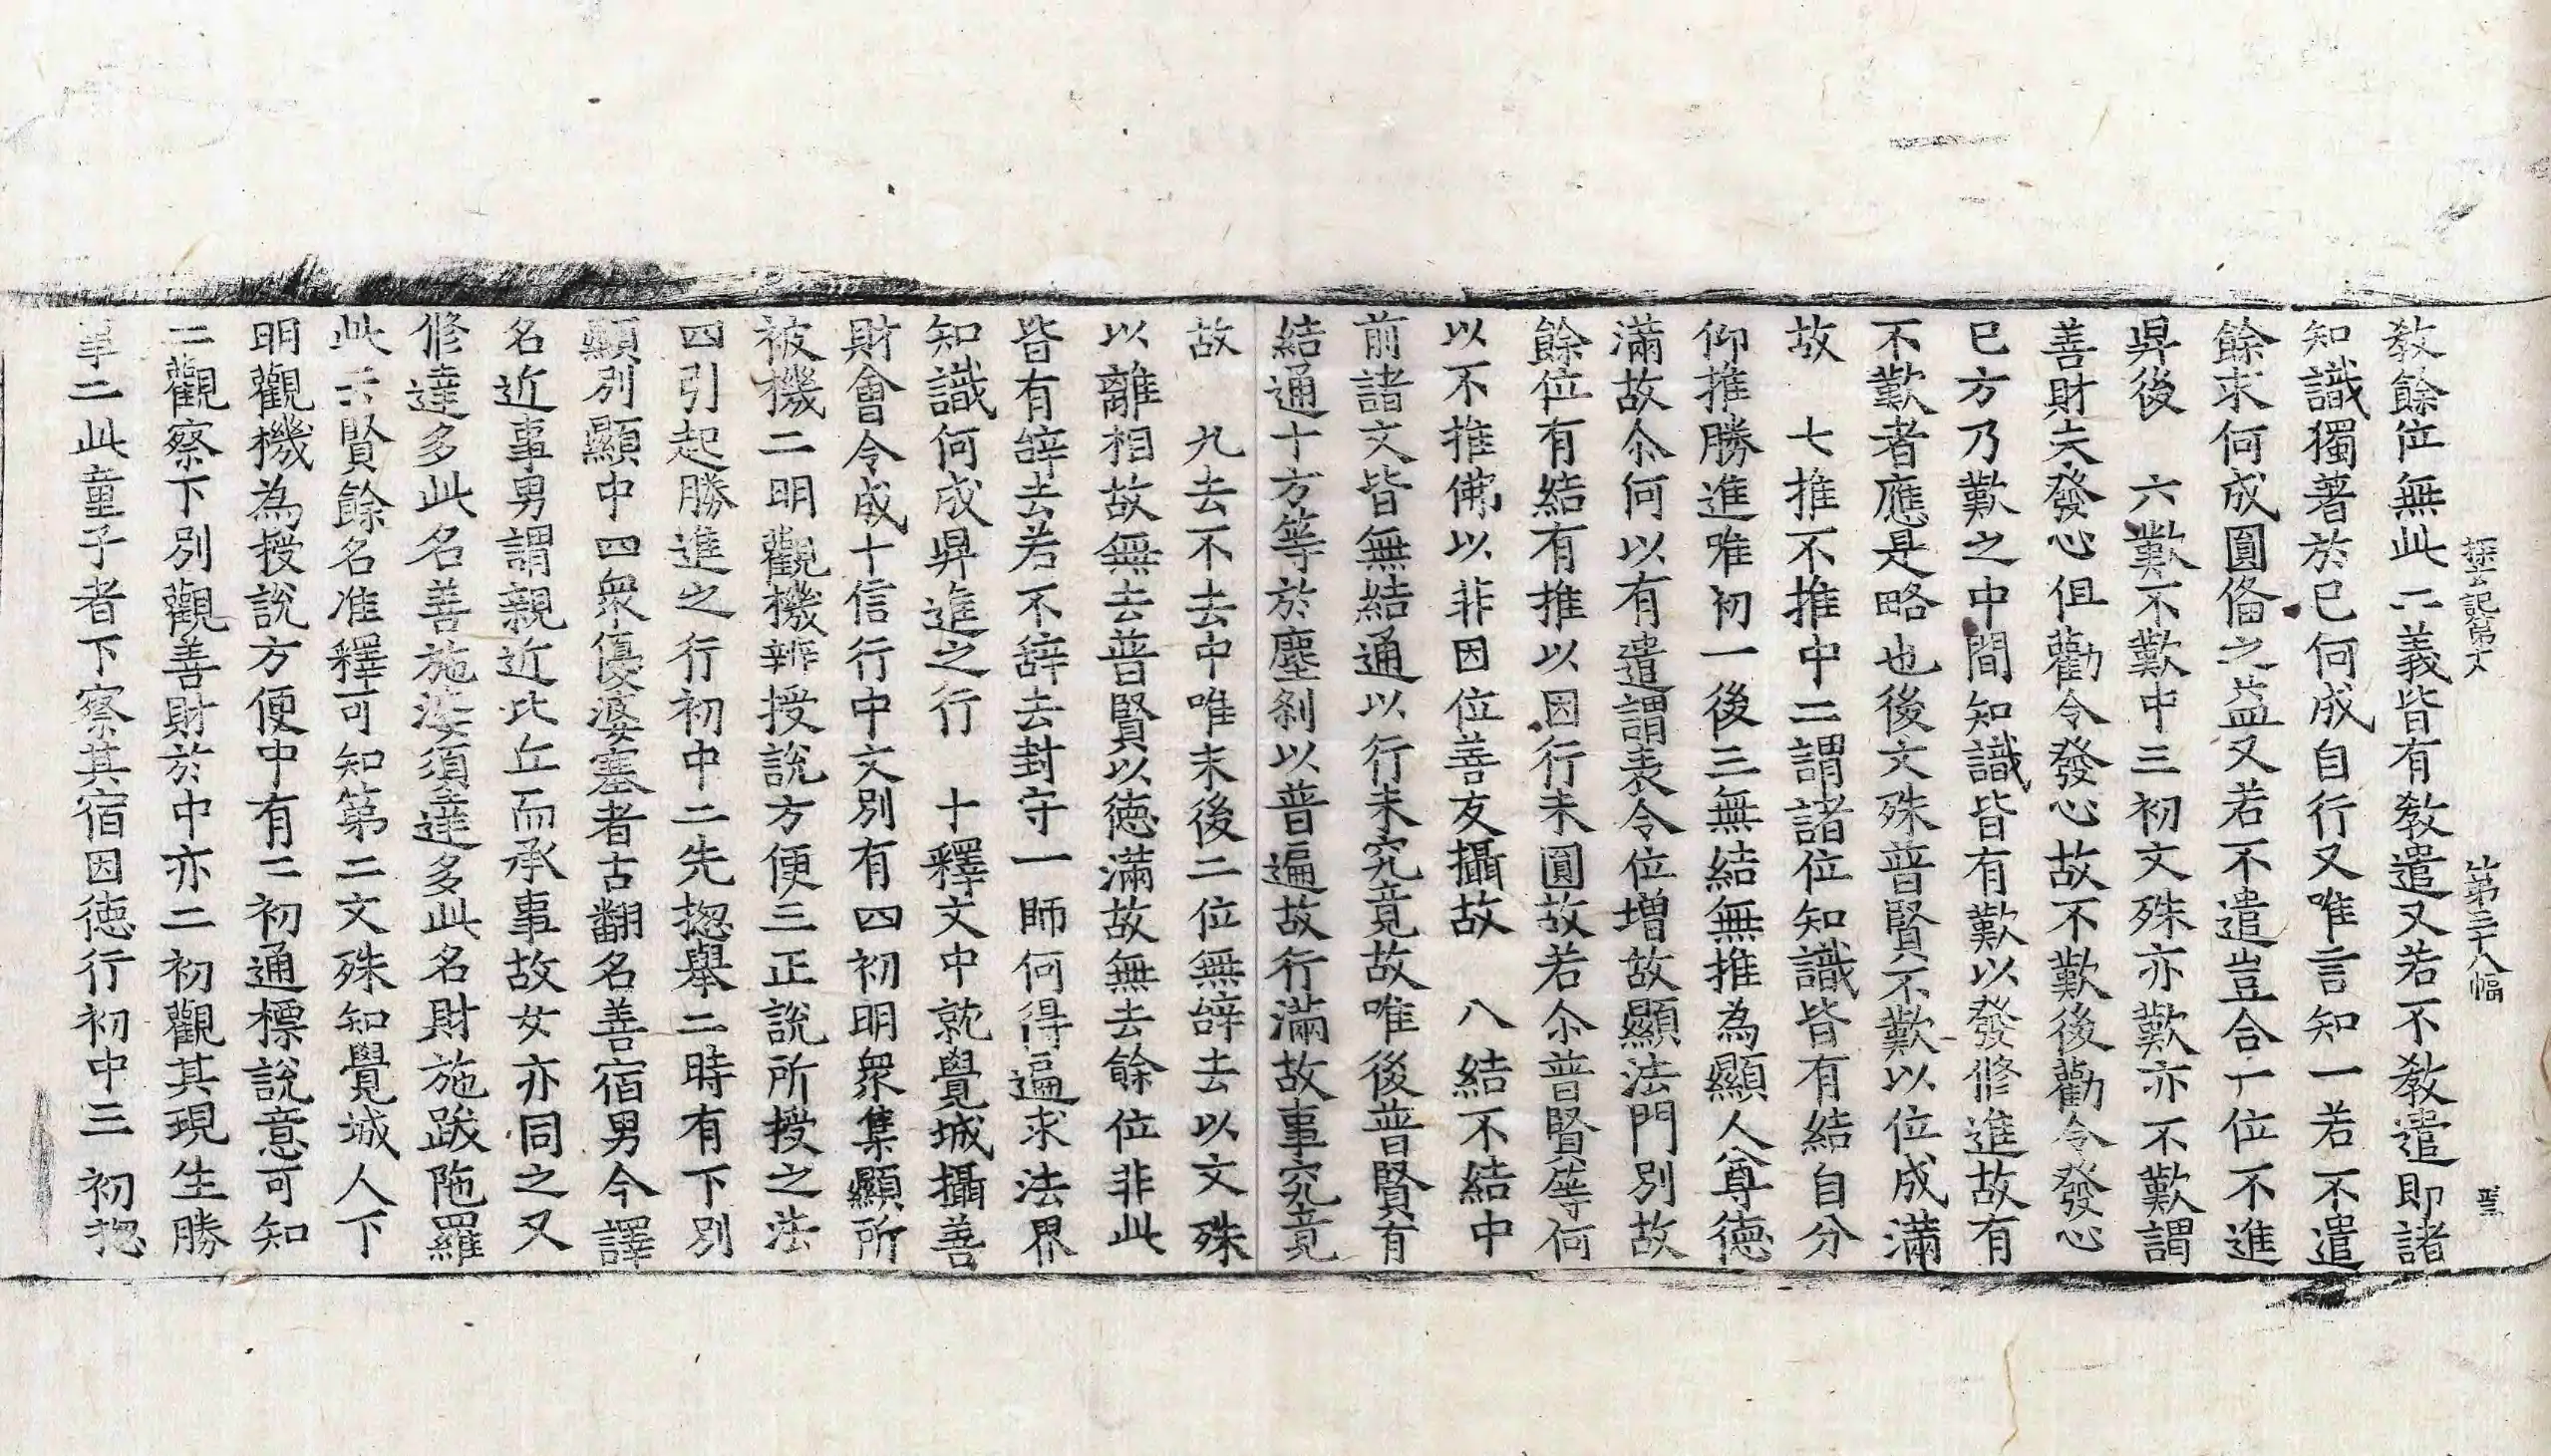 探玄記第十八 第三十八幅
教餘位無此二義皆有教遣又若不教遣即諸
知識獨著於已何成自行又唯言知一若不遣
餘求何成圓俻之益又若不遣豈合一位不進
昇後　六歎不歎中三初文殊亦歎亦不歎謂
善財夫發心但勸令發心故不歎後勸令發心
已方乃歎之中間知識皆有歎以發修進故有
不歎者應是略也後文殊普賢不歎以位成滿
故　七推不推中二謂諸位知識皆有結自分
仰推勝進唯初一後三無結無推為顯人尊德
滿故尒何以有遣謂表令位增故顯法門別故
餘位有結有推以因行未圓故若尒普賢等何
以不推佛以非因位善友攝故　八結不結中
前諸文皆無結通以行未究竟故唯後普賢有
結通十方等於塵刹以普遍故行滿故事究竟
故　九去不去中唯末後二位無辝去以文殊
以離相故無去普賢以徳滿故無去餘位非此
皆有辝去若不辝去封守一師何得遍求法界
知識何成昇進之行　十釋文中就覺城攝善
財會令成十信行中文別有四初明衆集顯所
被機二明觀機辨授說方便三正說所授之法
四引起勝進之行初中二先揔舉二時有下別
顯別顯中四衆優婆塞者古翻名善宿男今譯
名近事男謂親近比丘而承事故女亦同之又
修達多此名善施婆須達多此名財施跋陁羅
此云賢餘名准釋可知第二文殊知覺城人下
明觀機為授說方便中有二初通標說意可知
二觀察下別觀善財於中亦二初觀其現生勝
事二此童子者下察其宿因徳行初中三初揔